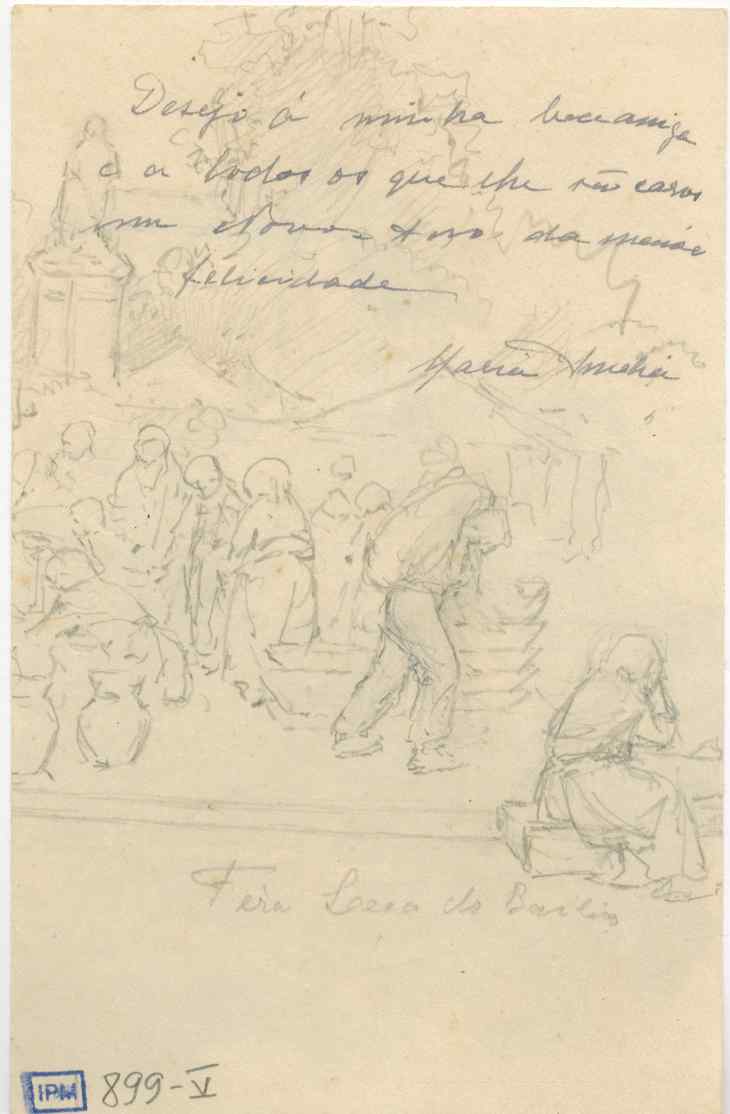 Desejo á minha boa amiga
e a todos os que lhe são caros
um Novo Anno da maior
felicidade
Maria Amelia
Feira Leça do Bailio
IPM 899-V